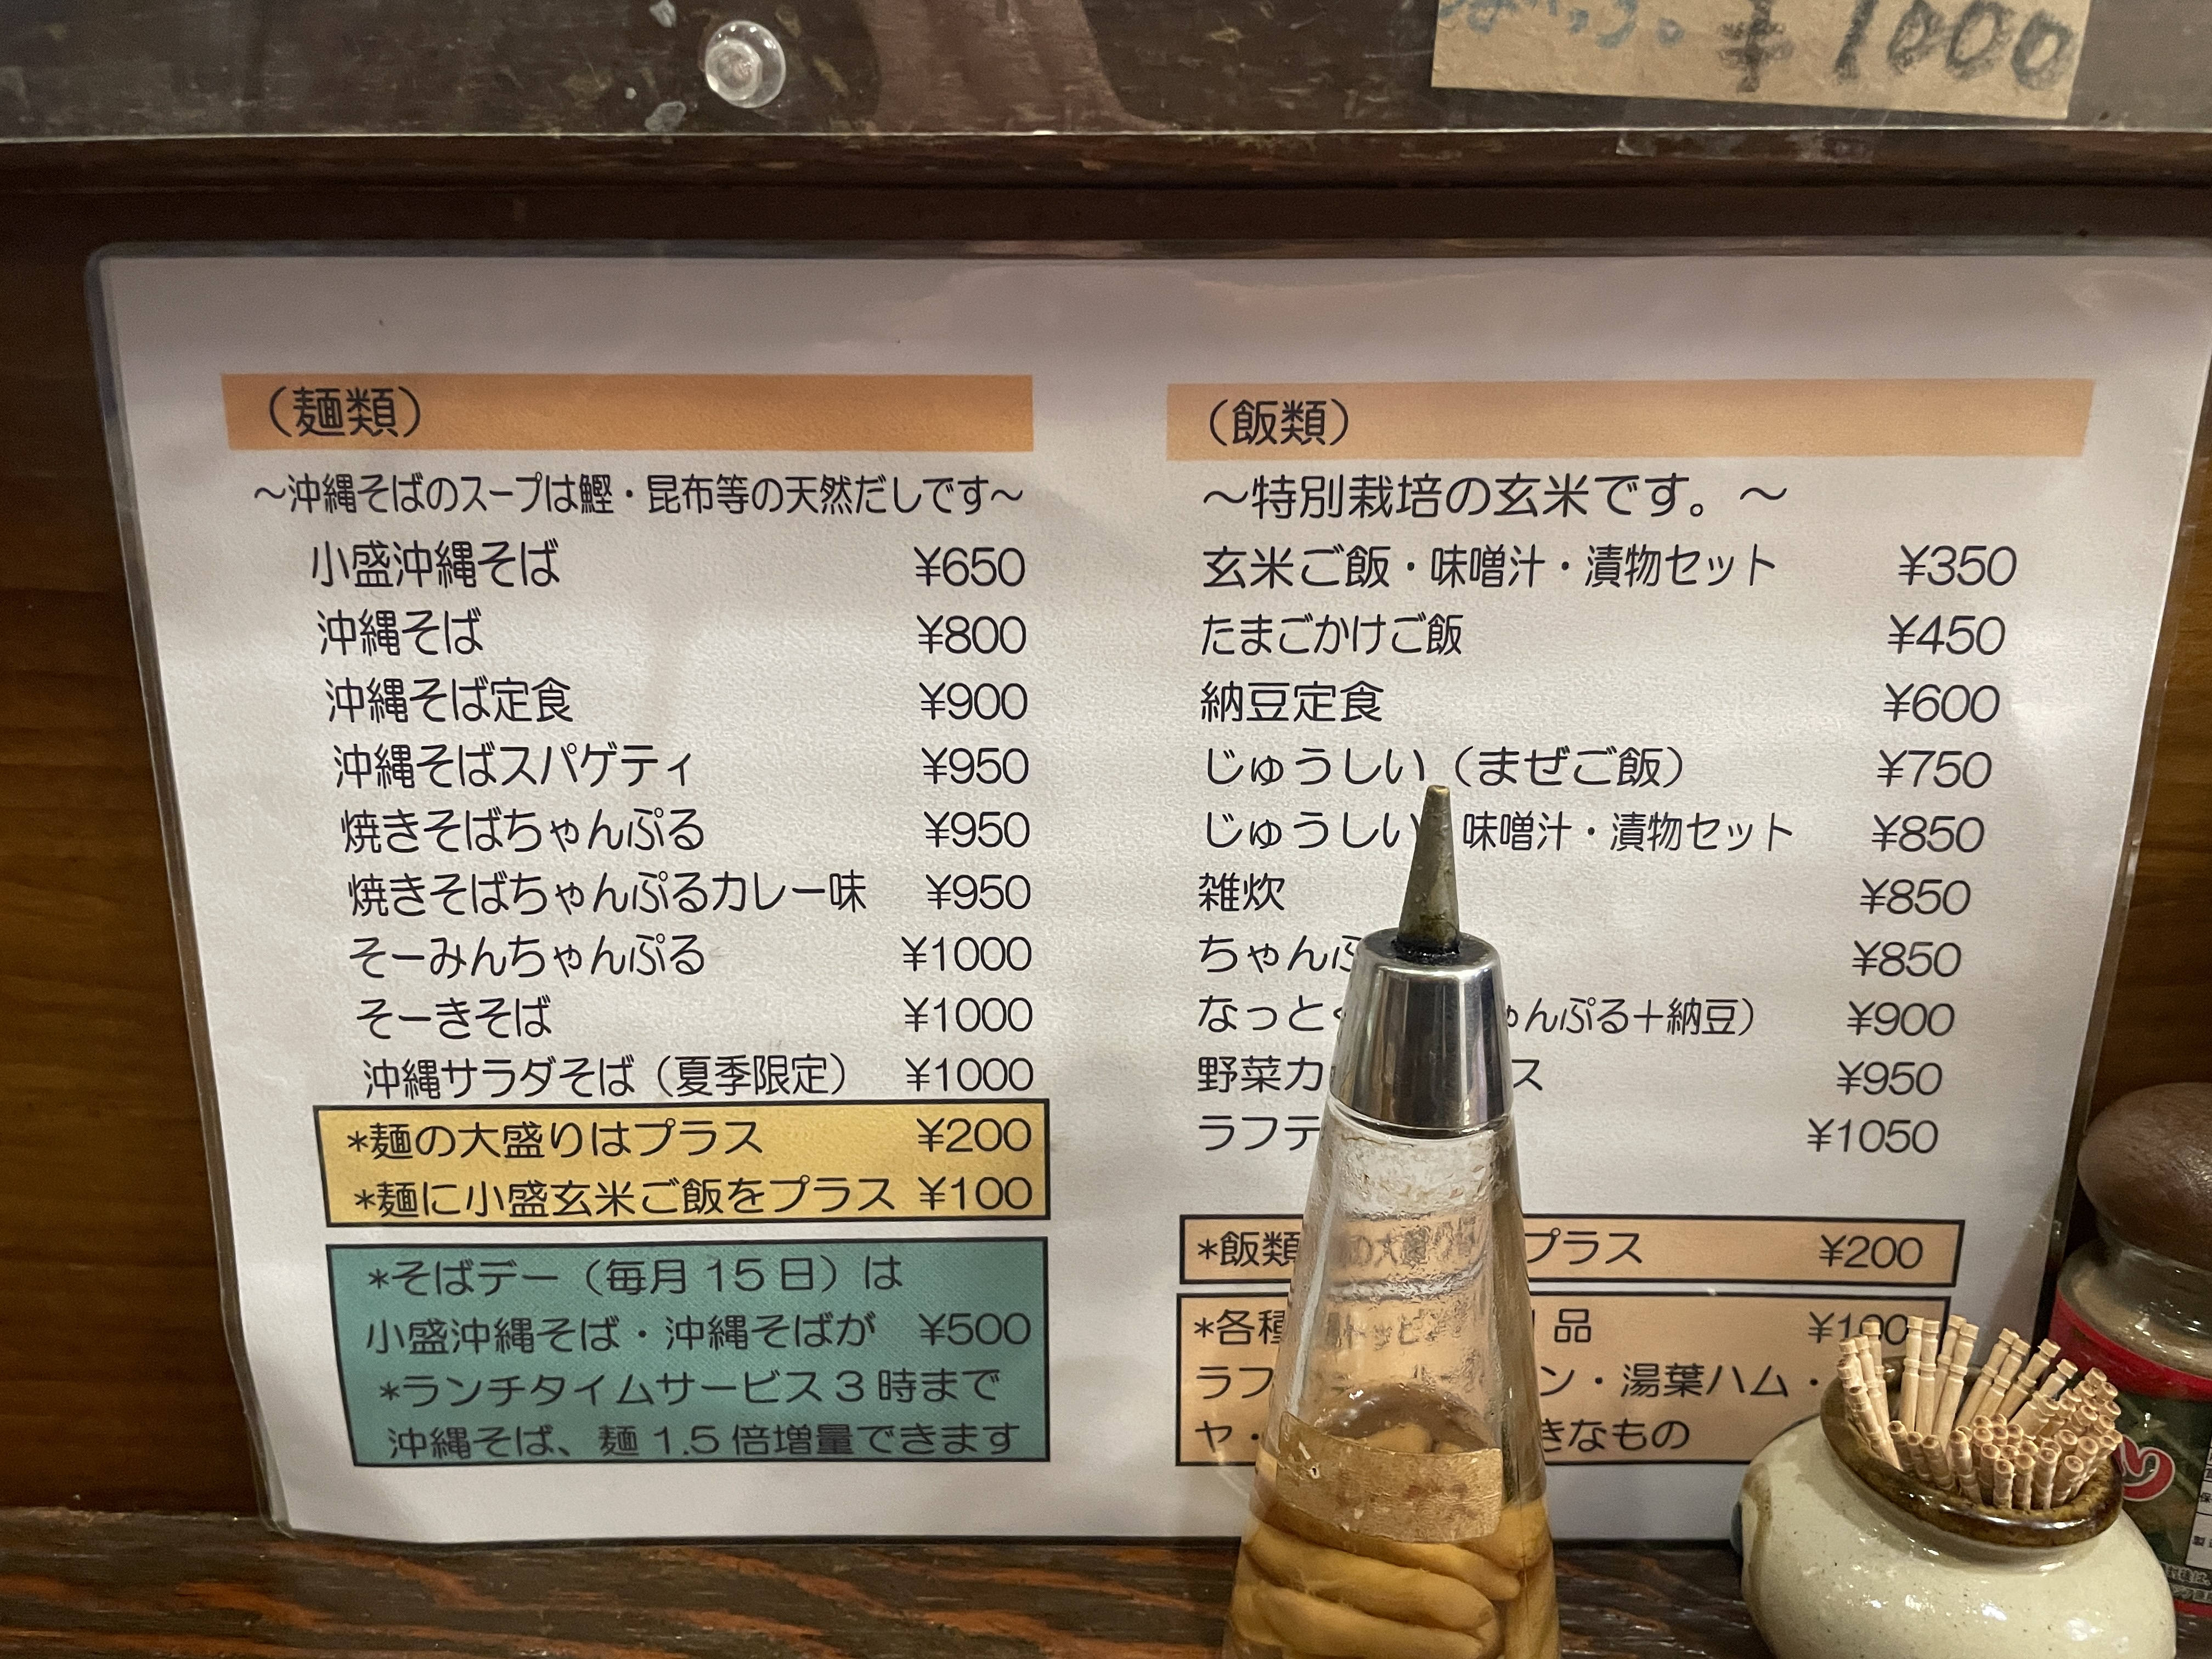 ¥1000
（麺類）
～沖縄そばのスープは鰹・昆布等の天然だしです～
小盛沖縄そば ¥650
沖縄そば ¥800
沖縄そば定食 ¥900
沖縄そばスパゲティ ¥950
焼きそばちゃんぷる ¥950
焼きそばちゃんぷるカレー味 ¥950
そーみんちゃんぷる ¥1000
そーきそば ¥1000
沖縄サラダそば（夏季限定） ¥1000
*麺の大盛りはプラス ¥200
*麺に小盛玄米ご飯をプラス ¥100
*そばデー（毎月15日）は
小盛沖縄そば・沖縄そばが ¥500
*ランチタイムサービス3時まで
沖縄そば、麺1.5倍増量できます
（飯類）
～特別栽培の玄米です。～
玄米ご飯・味噌汁・漬物セット ¥350
たまごかけご飯 ¥450
納豆定食 ¥600
じゅうしい（まぜご飯） ¥750
じゅうしい 味噌汁・漬物セット ¥850
雑炊 ¥850
ちゃん ¥850
なっと ゃんぷる＋納豆） ¥900
野菜カ ス ¥950
ラフテ ¥1050
*飯類 プラス ¥200
*各種 品 ¥100
ラフ ン・湯葉ハム・
ヤ・ きなもの